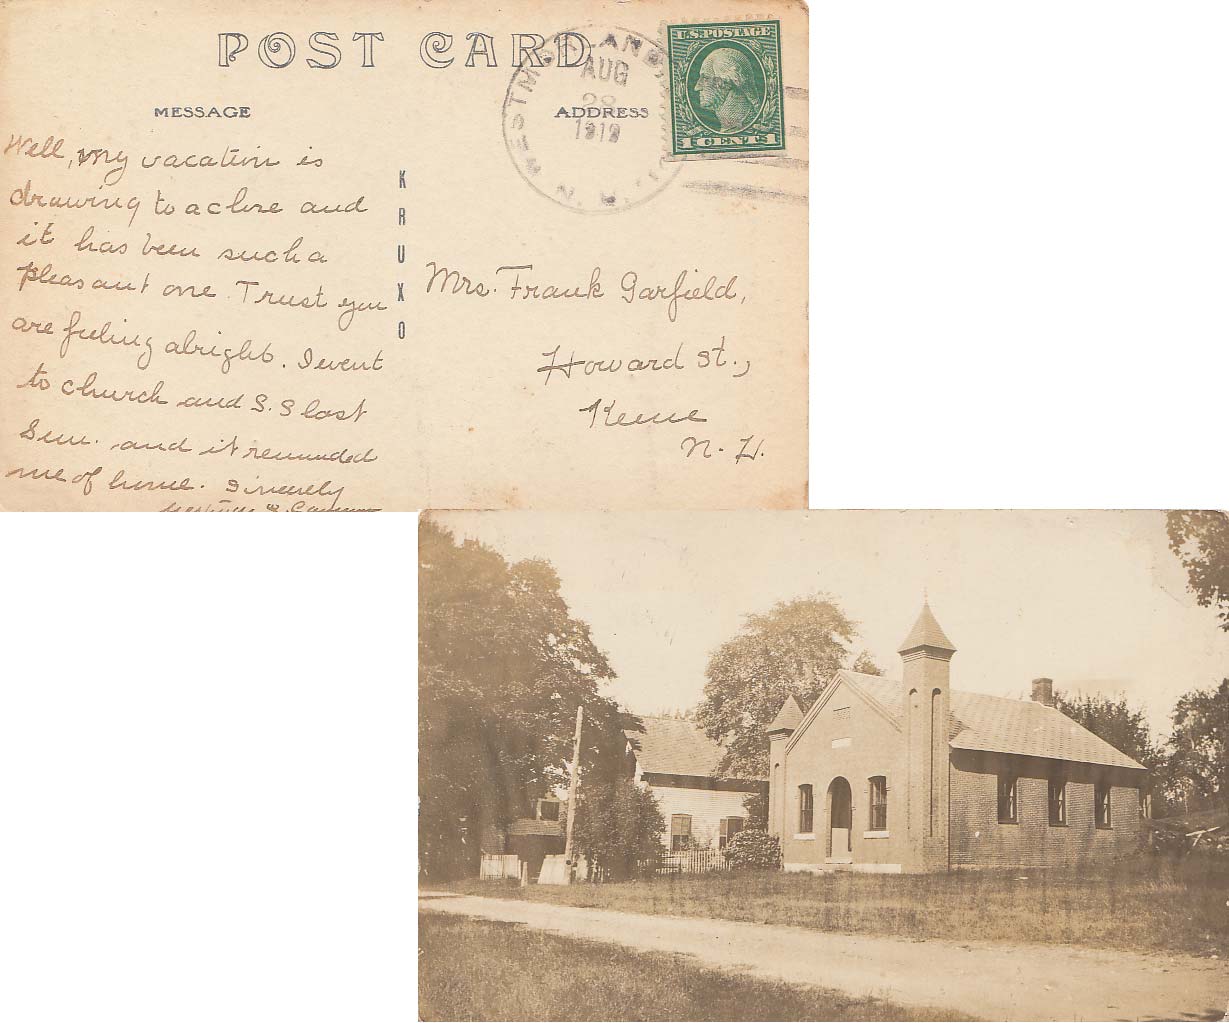 POST CARD
MESSAGE
ADDRESS
WESTMORLAND
AUG
28
1912
N. H.
U.S. POSTAGE
1 CENT 1
KRUXO
Well, my vacation is
drawing to a close and
it has been such a
pleasant one. Trust you
are feeling alright. I went
to church and S.S last
Sun. and it reminded
me of home. Sincerely
Mrs. Frank Garfield,
Howard St.,
Keene
N. H.